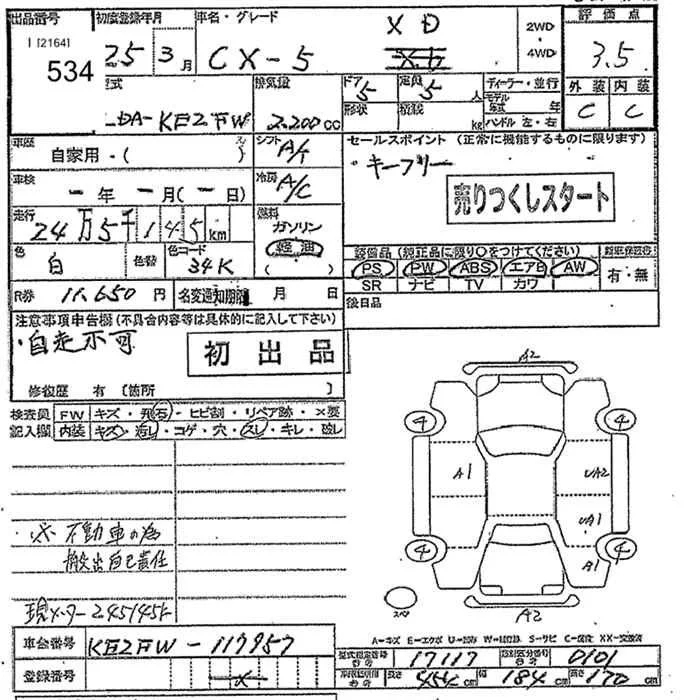 出品番号
I [2164]
534
初度登録年月
25 3月
車名・グレード
CX-5
XD
2WD
・
4WD
評価点
3.5
外装 内装
C C
型式
LDA-KE2FW
排気量
2.200cc
ドア 5
定員 5人
形状
積載 kg
ディーラー・並行
モデル年式 年
ハンドル 左・右
車歴
自家用・( )
シフト
A/T
セールスポイント (正常に機能するものに限ります)
・キーフリー
売りつくしスタート
車検
- 年 - 月 ( - 日)
冷房
A/C
走行
24万5千145km
燃料
ガソリン
軽油
( )
色
白
色替
色コード
34K
装備品 (純正品に限り○をつけてください)
PS PW ABS エアB AW
SR ナビ TV カワ
新車保証書
有・無
R券 11.650円
名変通知期限 月 日
後日品
注意事項申告欄(不具合内容等は具体的に記入して下さい)
・自走不可
初出品
修復歴 有 〔箇所 〕
検査員記入欄
FW キズ・飛石・ヒビ割・リペア跡・×要
内装 キズ・汚レ・コゲ・穴・スレ・キレ・破レ
A2
4 4
A1 UA2
UA1
4 4
A1
スペ
A2
※不動車の為
搬出自己責任
現メーター245145k
A-キズ E-エクボ U-凹み W-補修跡 S-サビ C-腐食 XX-交換済
車台番号
KE2FW-117957
登録番号
型式指定番号 17117
類別区分番号 0101
長さ 454cm 幅 184cm 高さ 170cm